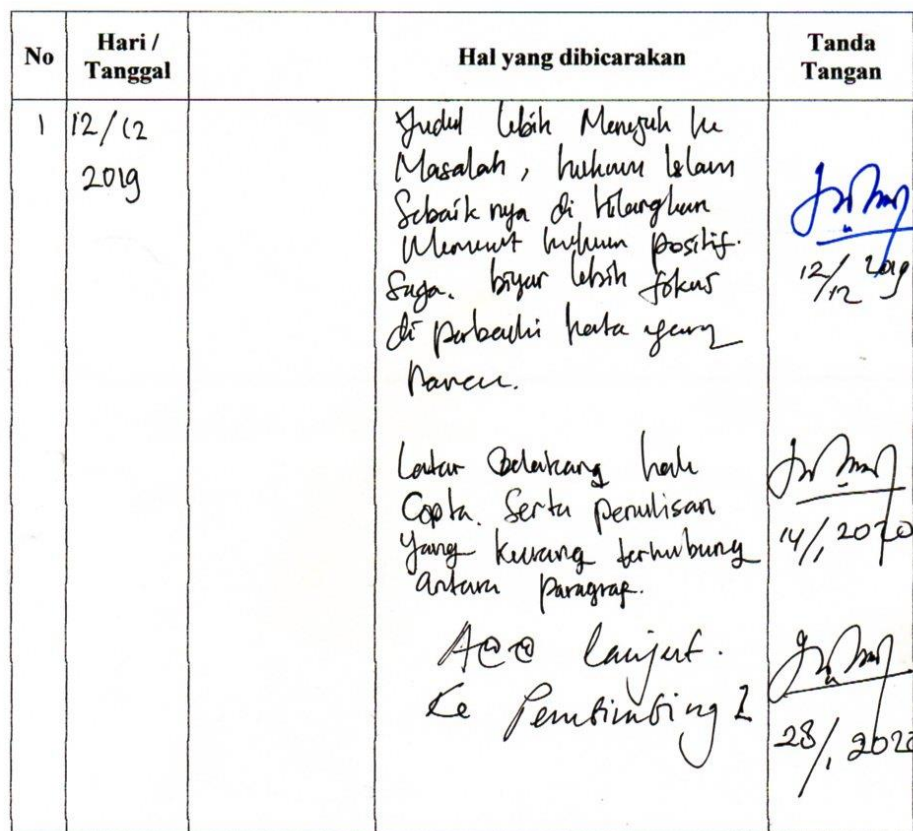 No
Hari /
Tanggal
Hal yang dibicarakan
Tanda
Tangan
1
12/12
2019
Judul lebih Menujuh ke
Masalah, hukum Islam
Sebaik nya di hilangkan
Menurut hukum positif.
Saga. biyar lebih fokus
di perbaiki kata yang
Latar Belakang hak
Copta. Serta penulisan
yang kurang terhubung
antara paragraf.
Acc lanjut.
Ke Pembimbing 2
12/12 2019
14/1 2020
28/1 2020